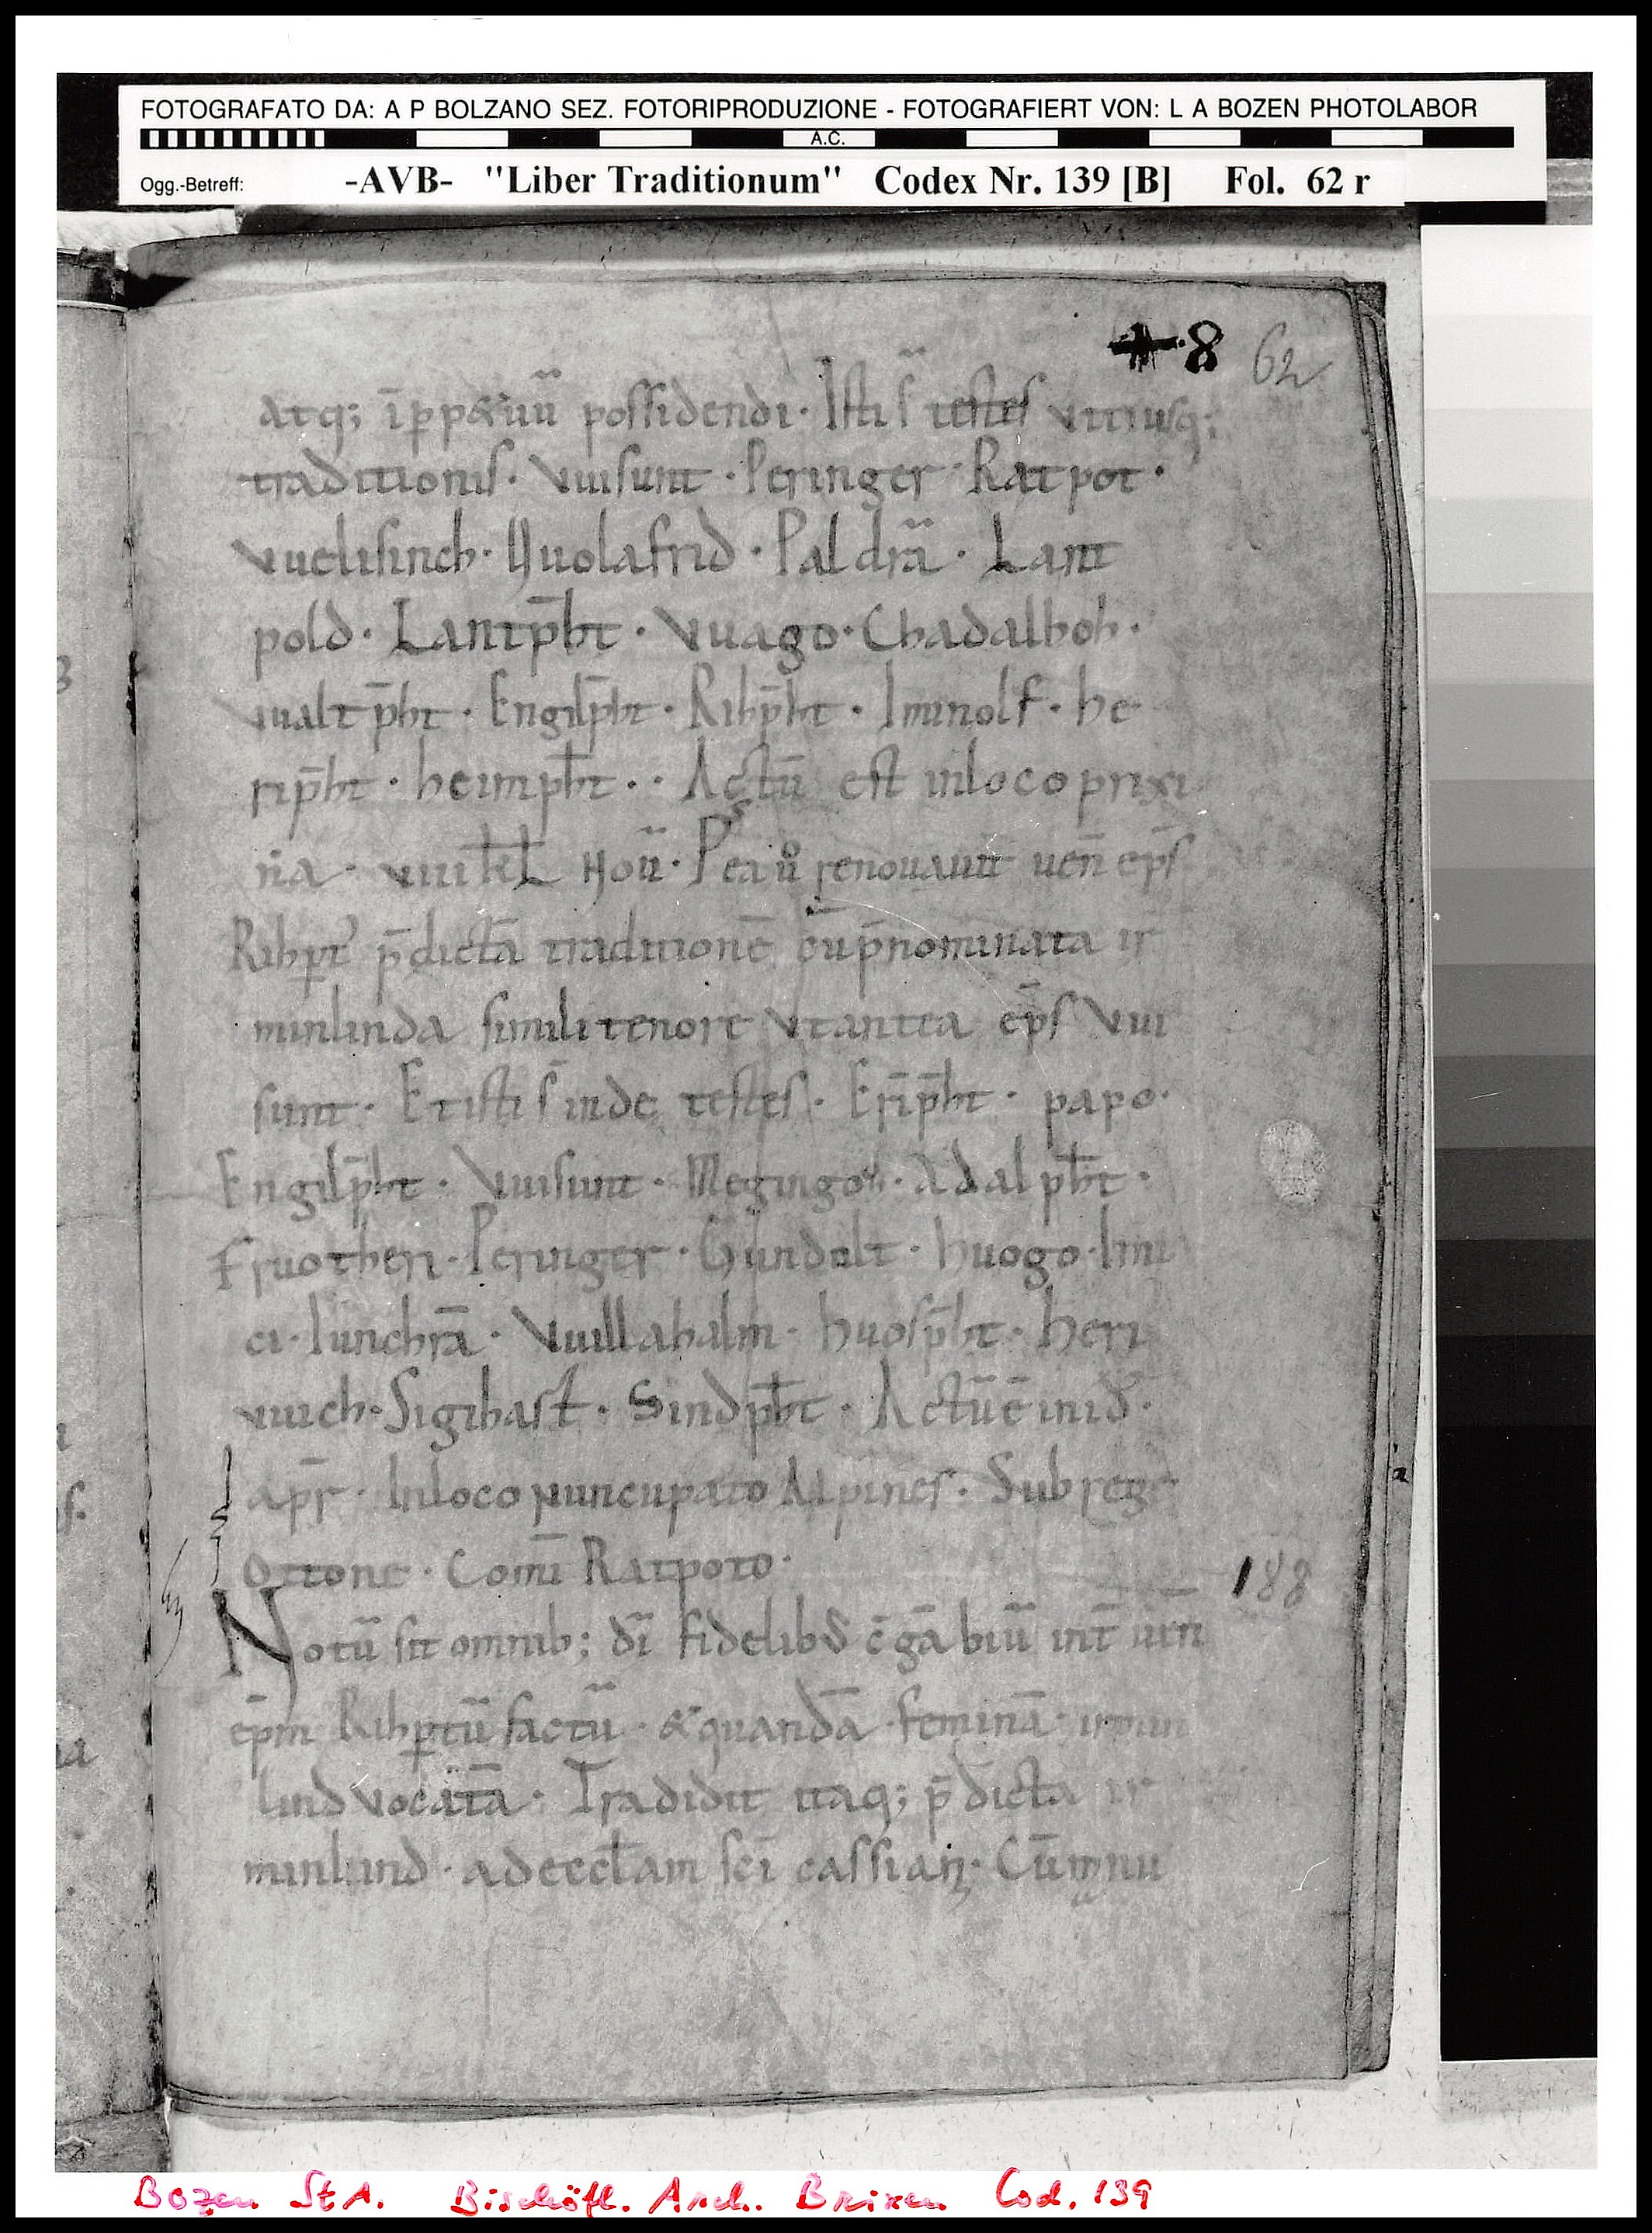 FOTOGRAFATO DA: A P BOLZANO SEZ. FOTORIPRODUZIONE - FOTOGRAFIERT VON: L A BOZEN PHOTOLABOR
A.C.
Ogg.-Betreff: -AVB- "Liber Traditionum" Codex Nr. 139 [B] Fol. 62 r
8 62
atq; īp̄p&uū possidendi · Isti s̄ testes utriusq;
traditionis · Vuisunt · Peringer · Ratpot ·
Vuelisinch · Nuolafrid · Paldrā · Lant
pold · Lantp̄ht · Vuago · Chadalhoh ·
Vualtp̄ht · Engilp̄ht · Rihp̄ht · Iminolf · he
rip̄ht · heimp̄ht · · Actū est inloco prixi
na · viii kƚ Noū · Postea ů renouauit uen̄ ep̄s
Rihꝑt p̄dictā traditionē cū p̄nominata ir
minlinda simili tenore ut antea ep̄s Vui
sunt · Et isti s̄ inde testes · Erip̄ht · papo ·
Engilp̄ht · Vuisunt · Megingoh · Adalp̄ht ·
Fruotheri · Peringer · Gundalt · huogo · Imi
ci · Iunchrā · Vuillahalm · huosp̄ht · Heri
uuich · Sigihast · Sindp̄ht · Actū ē in id ·
apr̄ · Inloco nuncupato Alpines · Sub rege
Ottone · Comī Ratpoto · 188
Notū sit omnib; dī fidelib; c̄gābiū int̄ uen̄
ep̄m Rihꝑtū factū · & quandā feminā · irmin
lind vocatā · Tradidit itaq; p̄dicta ir
minlind · ad eccƚam scī cassiani · Cū manu
Bozen StA. Bischöfl. Arch. Brixen Cod. 139